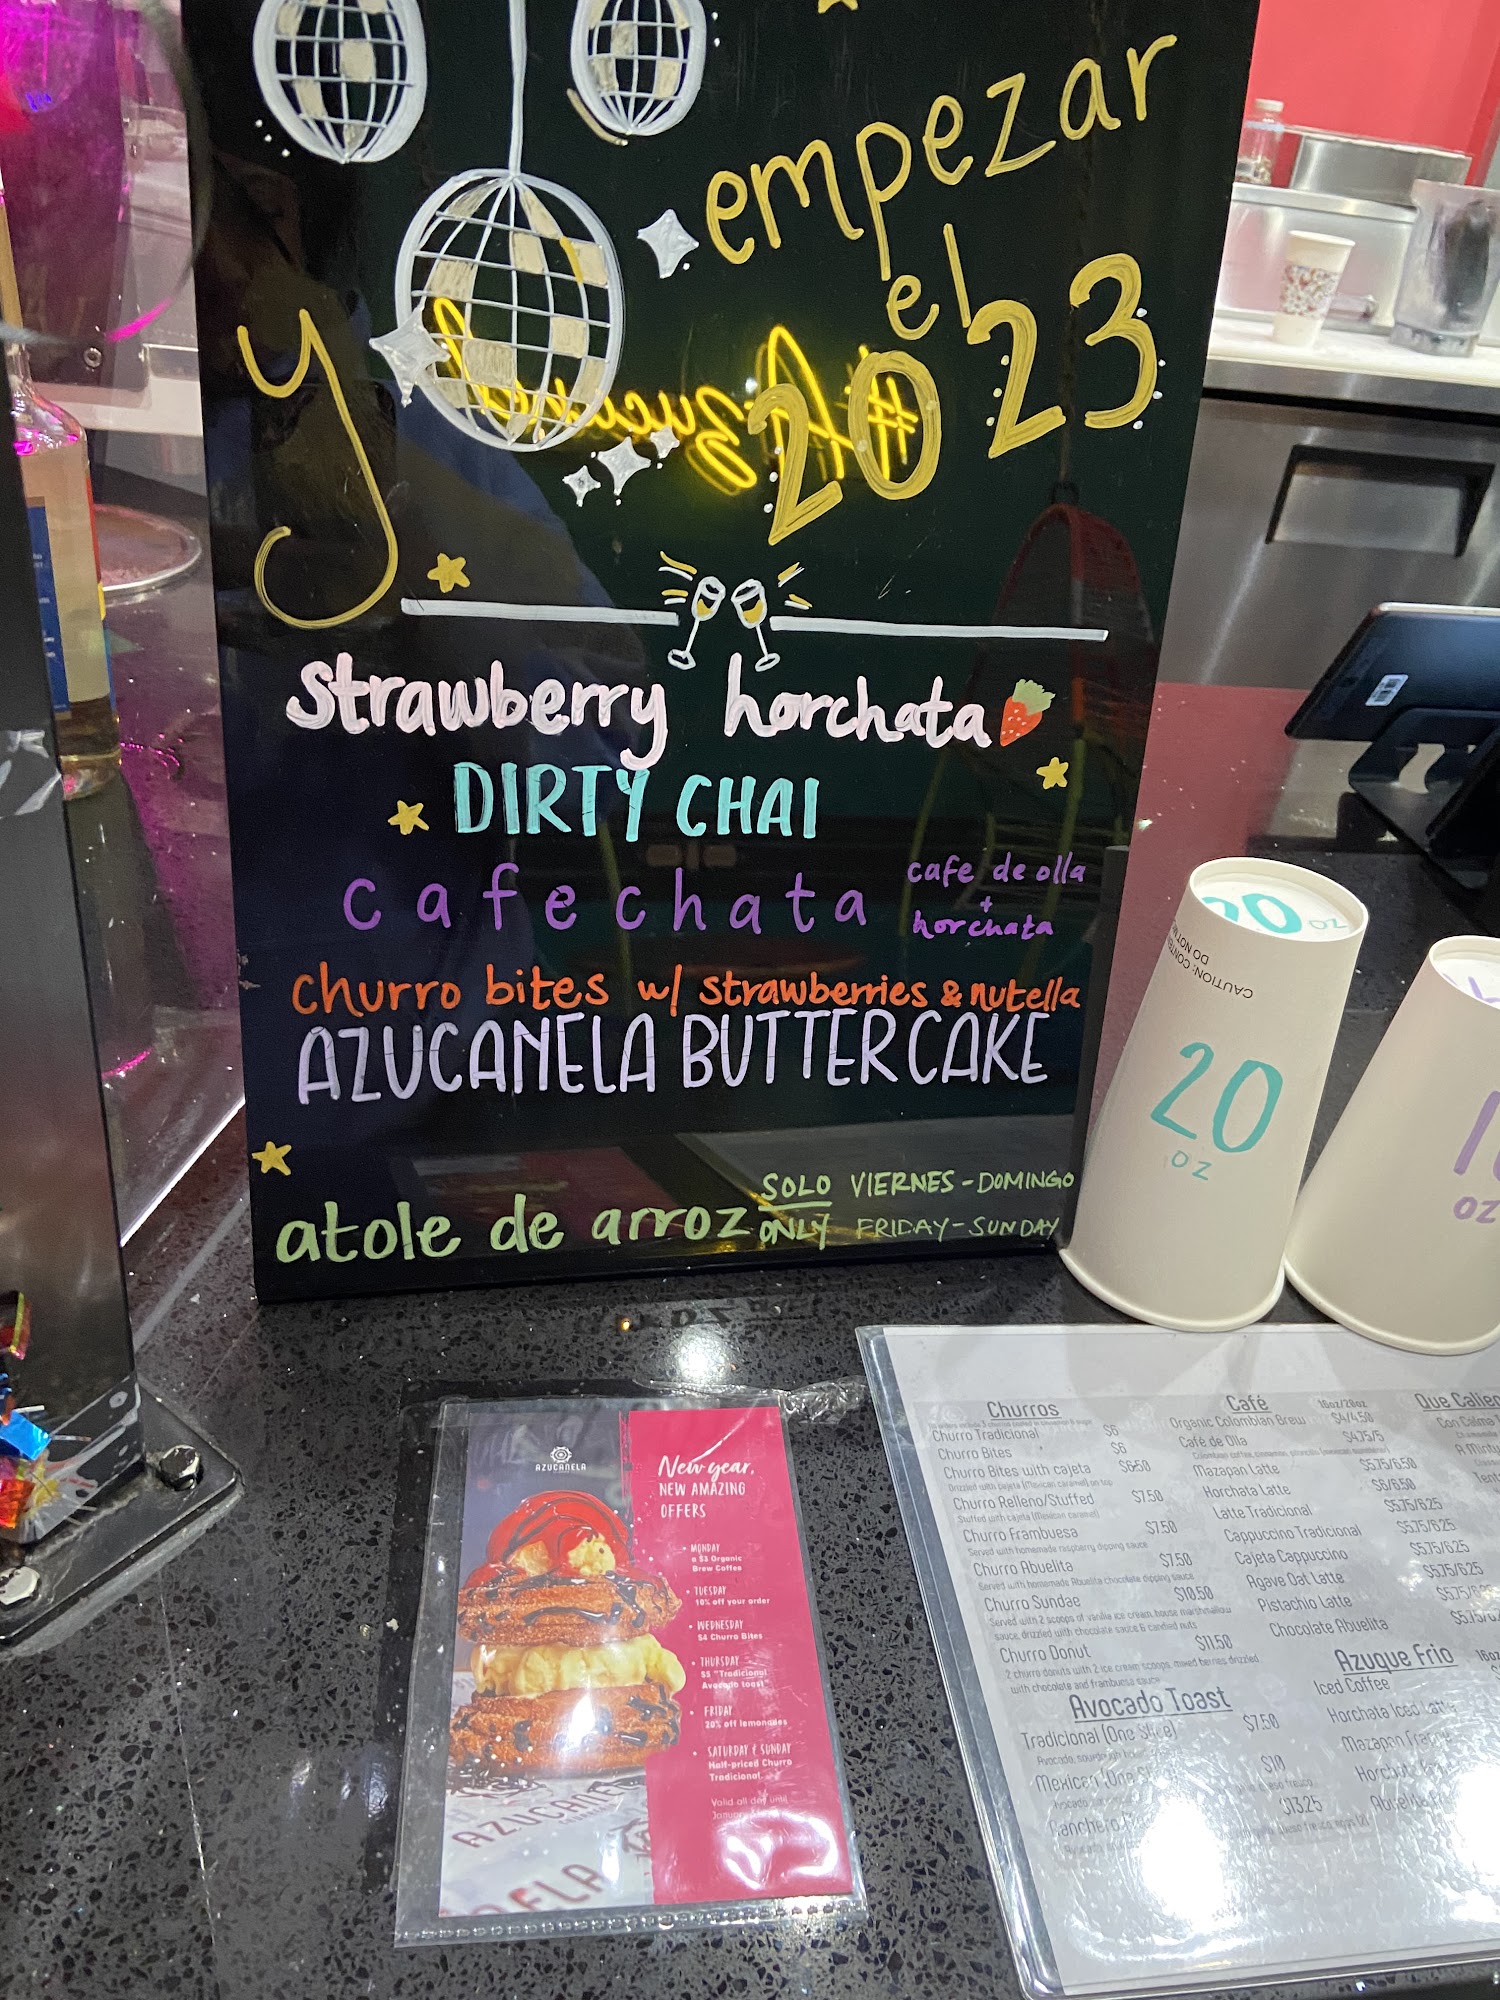 empezar
y
el
2023
#Azucanela
strawberry horchata
DIRTY CHAI
cafechata
cafe de olla
+
horchata
churro bites w/ strawberries & nutella
AZUCANELA BUTTERCAKE
atole de arroz
SOLO VIERNES - DOMINGO
ONLY FRIDAY - SUNDAY
20 oz
CAUTION:
DO NOT
20
OZ
oz
AZUCANELA
New year,
NEW AMAZING
OFFERS
• MONDAY
a $3 Organic
Brew Coffee
• TUESDAY
10% off your order
• WEDNESDAY
$4 Churro Bites
• THURSDAY
$5 "Tradicional
Avocado toast"
• FRIDAY
20% off lemonades
• SATURDAY & SUNDAY
Half-priced Churro
Tradicional
Valid all day until
Churros
Churro Tradicional $6
Churro Bites $6
Churro Bites with cajeta $6.50
Drizzled with cajeta (Mexican caramel) on top
Churro Relleno/Stuffed $7.50
Stuffed with cajeta (Mexican caramel)
Churro Frambuesa $7.50
Served with homemade raspberry dipping sauce
Churro Abuelita $7.50
Served with homemade Abuelita chocolate dipping sauce
Churro Sundae $10.50
Served with 2 scoops of vanilla ice cream, house marshmallow
sauce, drizzled with chocolate sauce & candied nuts
Churro Donut $11.50
2 churro donuts with 2 ice cream scoops, mixed berries drizzled
with chocolate and frambuesa sauce
Avocado Toast
Tradicional (One Slice) $7.50
Mexican (One $10
Ranchero $13.25
Café 16oz/20oz
Organic Colombian Brew $4/4.50
Café de Olla $4.75/5
Mazapan Latte $5.75/6.50
Horchata Latte $6/6.50
Latte Tradicional $5.75/6.25
Cappuccino Tradicional $5.75/6.25
Cajeta Cappuccino $5.75/6.25
Agave Oat Latte
Pistachio Latte
Chocolate Abuelita
Azuque Frio
Iced Coffee
Horchata Iced Latte
Mazapan
Horchata
Que Calien